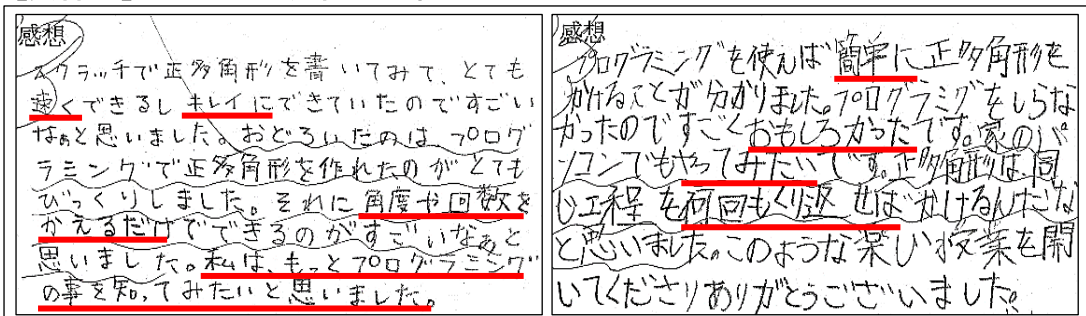 感想
スクラッチで正多角形を書いてみて、とても
速くできるし キレイにできていたのですごい
なぁと思いました。おどろいたのは プログ
ラミングで正多角形を作れたのがとても
びっくりしました。それに角度や回数を
かえるだけでできるのがすごいなぁと
思いました。私は、もっとプログラミング
の事を知ってみたいと思いました。
感想
プログラミングを使えば簡単に正多角形を
かけることが分かりました。プログラミグをしらな
かったのですごくおもしろかったです。家のパ
ソコンでもやってみたいです。正多角形は、同
じ工程を何回もくり返せばかけるんだな
と思いました。このような楽しい授業を開
いてくださりありがとうございました。